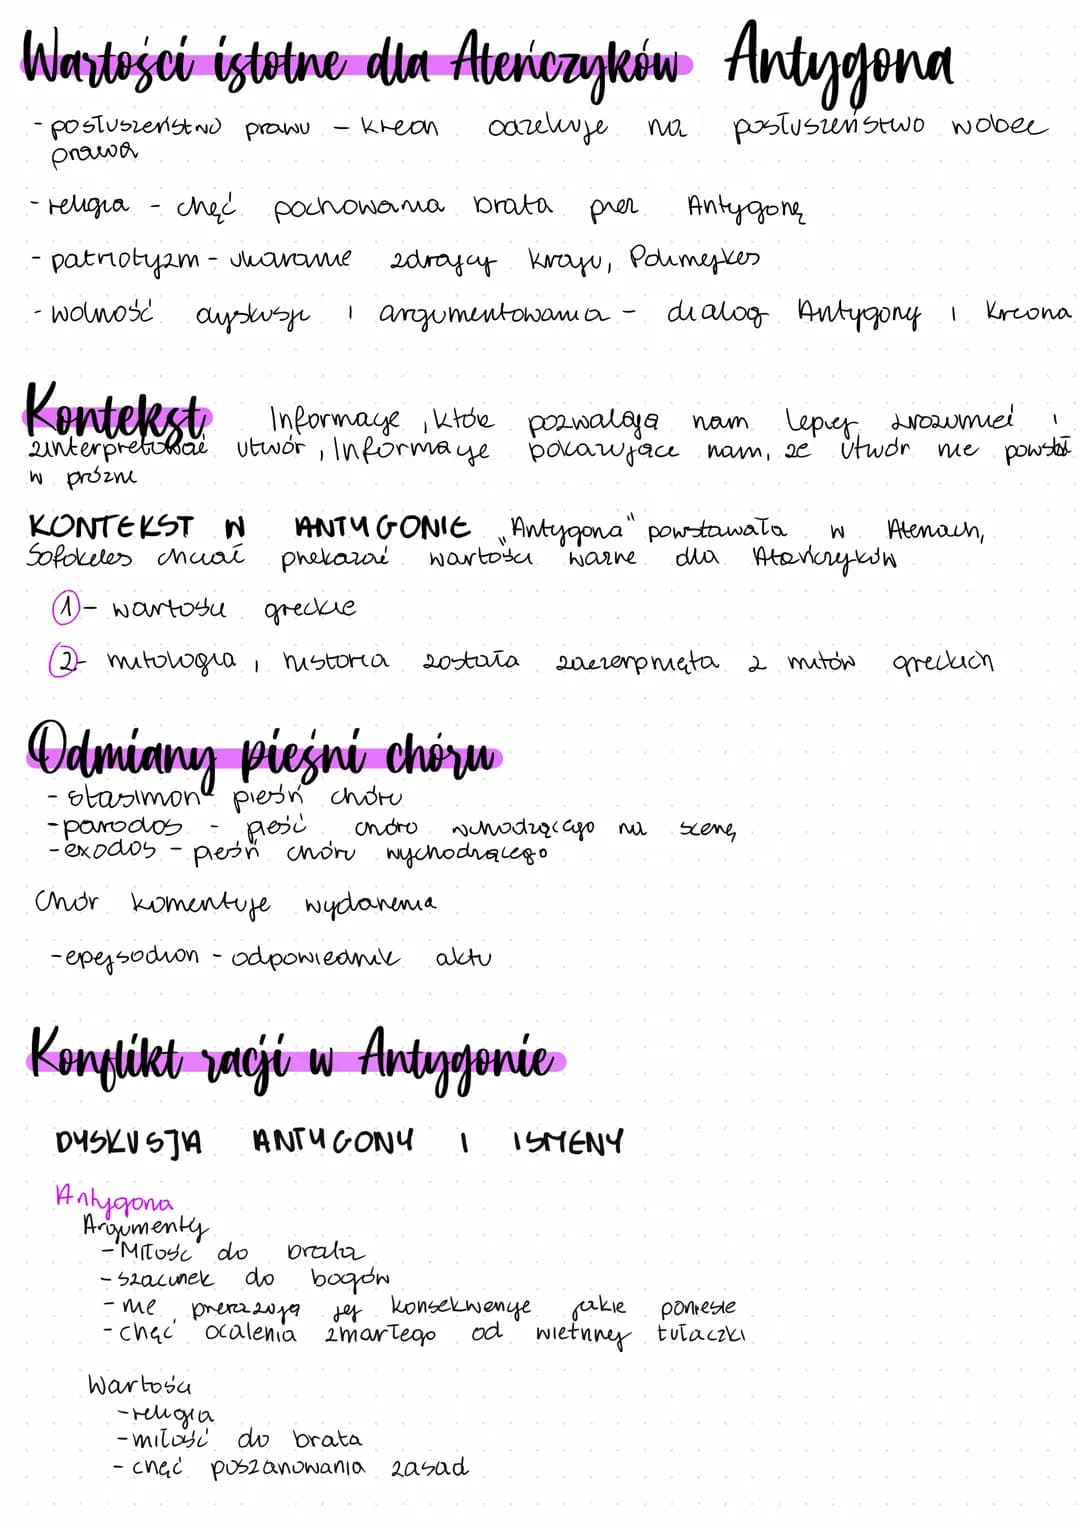 Wartości istotne dla Ateńczyków Antygona
- posłuszeństwo prawu - Kreon oczekuje na posłuszeństwo wobec
prawa
- religia - chęć pochowania brata przez Antygonę
- patriotyzm - ukaranie zdrajcy kraju, Polinejkes
- wolność dyskusji i argumentowania - dialog Antygony i Kreona
Kontekst Informacje, które pozwalają nam lepiej zrozumieć i
zinterpretować utwór, Informacje pokazujące nam, że utwór nie powstał
w próżni
KONTEKST W ANTYGONIE „Antygona" powstawała w Atenach,
Sofokles chciał przekazać wartości ważne dla Ateńczyków
1 - wartości greckie
2 - mitologia, historia została zaczerpnięta z mitów greckich
Odmiany pieśni chóru
- stasimon - pieśń chóru
- parodos - pieść chóru wchodzącego na scenę
- exodos - pieśń chóru wychodzącego
Chór komentuje wydarzenia
- epejsodion - odpowiednik aktu
Konflikt racji w Antygonie
DYSKUSJA ANTYGONY I ISMENY
Antygona
Argumenty
- Miłość do brata
- szacunek do bogów
- nie przerażają jej konsekwencje jakie poniesie
- chęć ocalenia zmarłego od wietrznej tułaczki
Wartości
- religia
- miłość do brata
- chęć poszanowania zasad